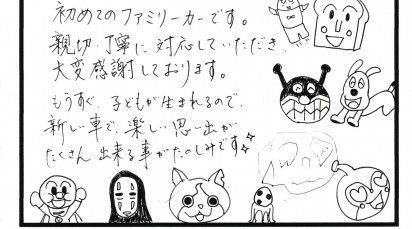 初めてのファミリーカーです。
親切、丁寧に対応していただき、
大変感謝しております。
もうすぐ、子どもが生まれるので、
新しい車で、楽しい思い出が
たくさん出来る事がたのしみです